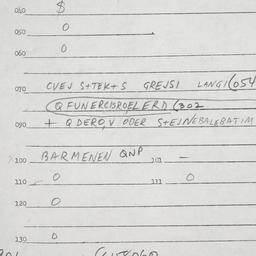 040 $
050 0
060 0
070 CVEJ S+TEK+S GREJSI LANGI(054
(QFUNERCISROELERD (302
090 + QDERO,V ODER S+EJNEBALEBATIM
100 BARMENEN QNP 101 -
110 0 111 0
120 0
130 0